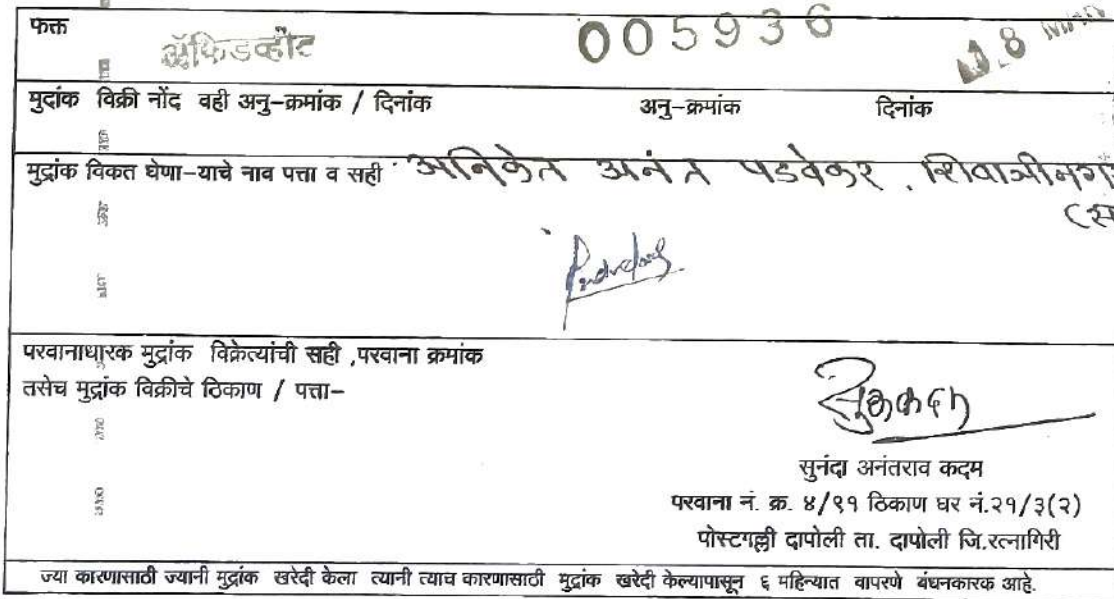 फक्त
ॲफिडेव्हीट 005936 18
मुद्रांक विक्री नोंद वही अनु-क्रमांक / दिनांक अनु-क्रमांक दिनांक
मुद्रांक विकत घेणा-याचे नाव पत्ता व सही अनिकेत अनंत पडवेकर, शिवाजीनगर
(सा
परवानाधारक मुद्रांक विक्रेत्यांची सही ,परवाना क्रमांक
तसेच मुद्रांक विक्रीचे ठिकाण / पत्ता-
सुनंदा अनंतराव कदम
परवाना नं. क्र. ४/९१ ठिकाण घर नं.२१/३(२)
पोस्टगल्ली दापोली ता. दापोली जि.रत्नागिरी
ज्या कारणासाठी ज्यानी मुद्रांक खरेदी केला त्यानी त्याच कारणासाठी मुद्रांक खरेदी केल्यापासून ६ महिन्यात वापरणे बंधनकारक आहे.